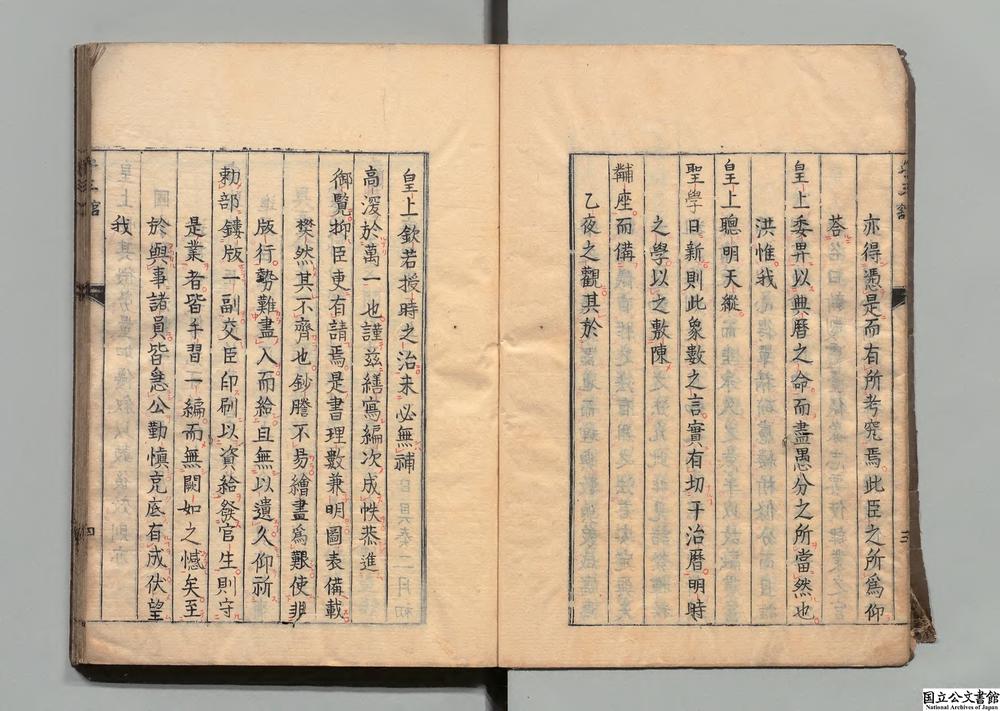 亦得憑是而有所考究焉此臣之所爲仰
荅
皇上委畀以典曆之命而盡愚分之所當然也
洪惟我
皇上聰明天縱
聖學日新則此象數之言實有切乎治曆明時
之學以之敷陳
黼座而備
乙夜之觀其於
皇上欽若授時之治未必無補
高深於萬一也謹兹繕寫編次成帙恭進
御覽抑臣更有請焉是書理數兼明圖表備載
樊然其不齊也鈔謄不易繪畫爲艱使非
版行勢難盡人而給且無以遺久仰祈
勅部鏤版一副交臣印刷以資給發官生則守
是業者皆手習一編而無闕如之憾矣至
於與事諸員皆急公勤慎克底有成伏望
我
三
四
国立公文書館
National Archives of Japan